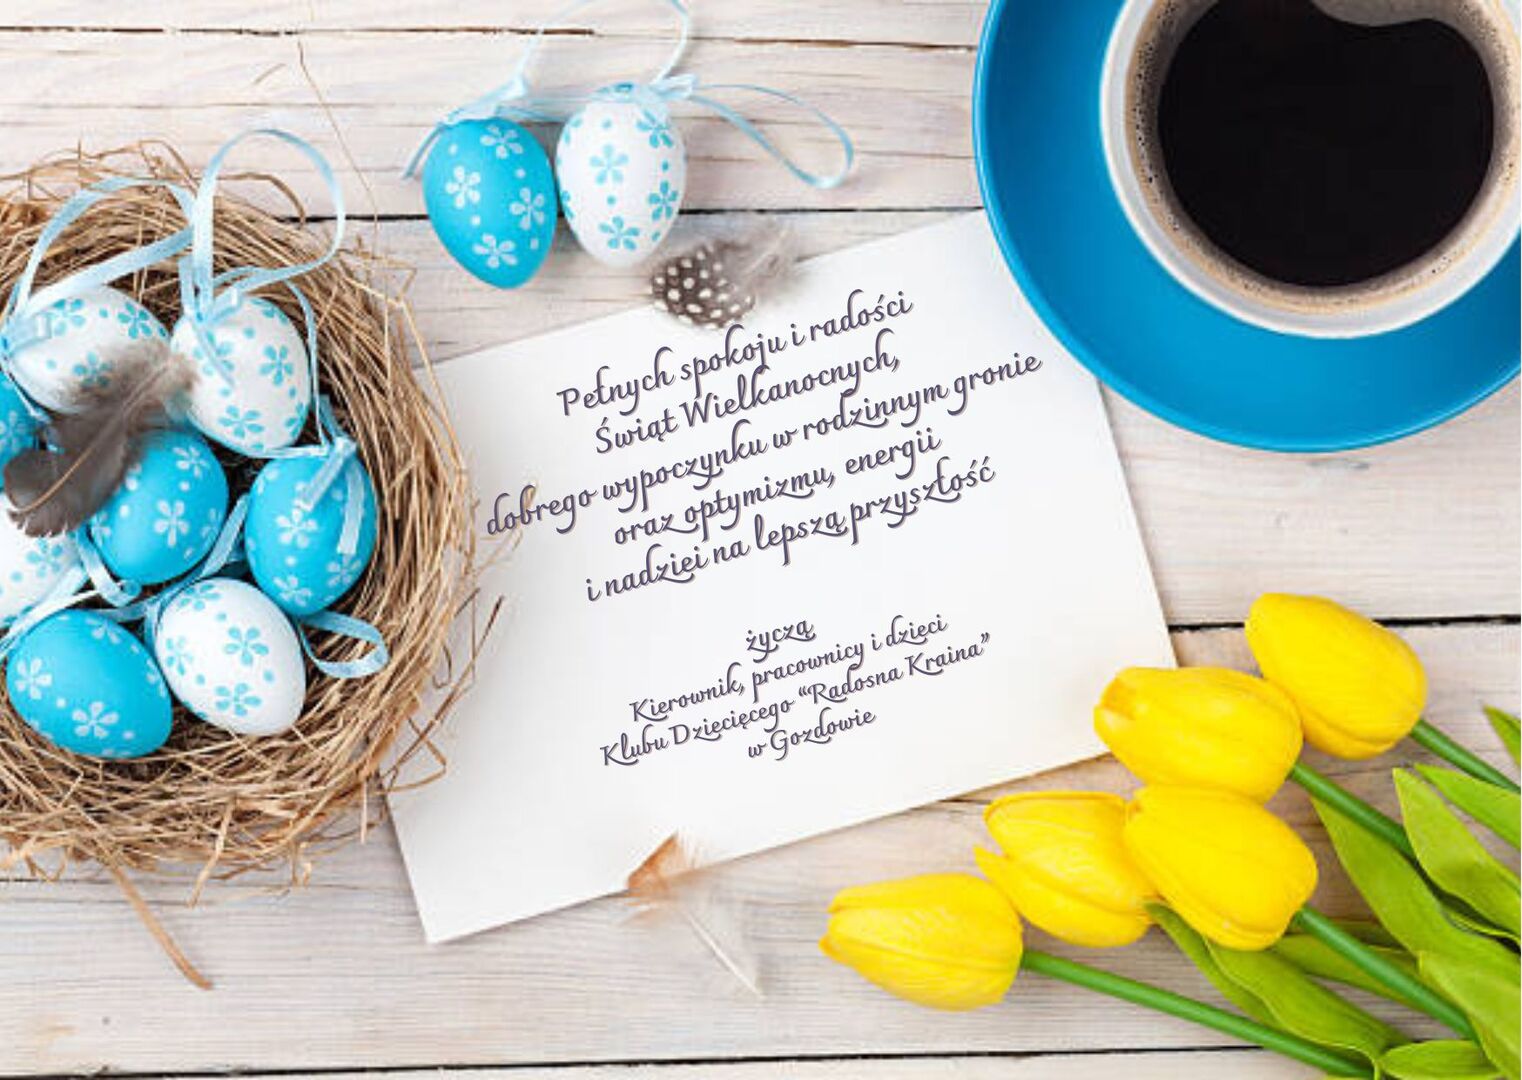 Pełnych spokoju i radości
Świąt Wielkanocnych,
dobrego wypoczynku w rodzinnym gronie
oraz optymizmu, energii
i nadziei na lepszą przyszłość
życzą
Kierownik, pracownicy i dzieci
Klubu Dziecięcego “Radosna Kraina”
w Gozdowie